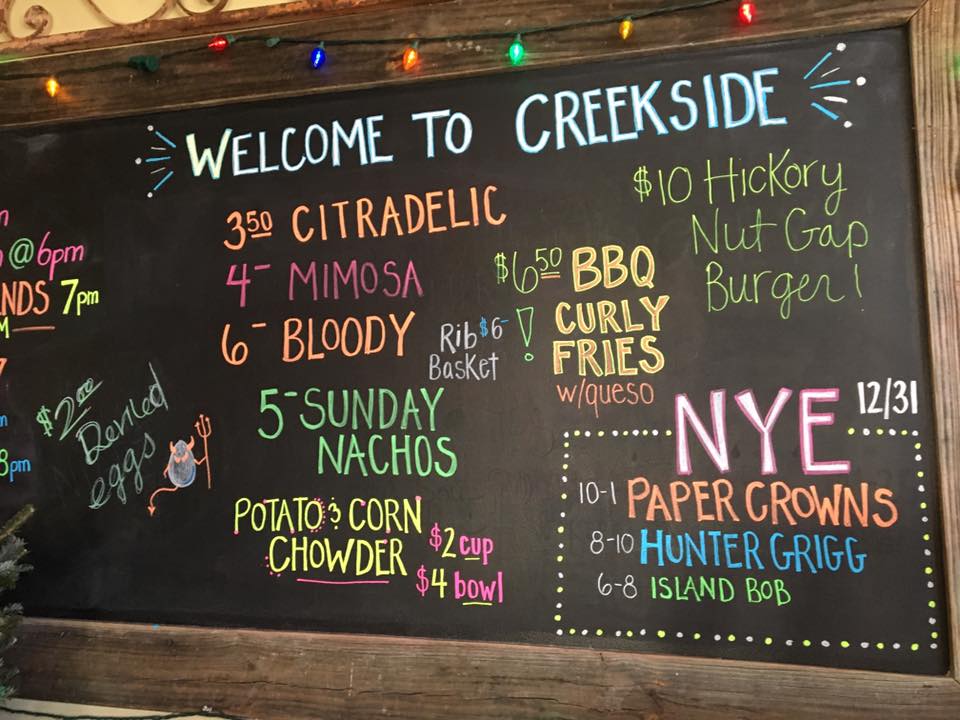 WELCOME TO CREEKSIDE
@6pm
7pm
8pm
350 CITRADELIC
4- MIMOSA
6- BLOODY
Rib $6-
Basket
5- SUNDAY
NACHOS
$2.00
Deviled
eggs
POTATO & CORN
CHOWDER
$2 cup
$4 bowl
$10 Hickory
Nut Gap
Burger!
$6.50 BBQ
! CURLY
FRIES
w/queso
NYE 12/31
10-1 PAPER CROWNS
8-10 HUNTER GRIGG
6-8 ISLAND BOB